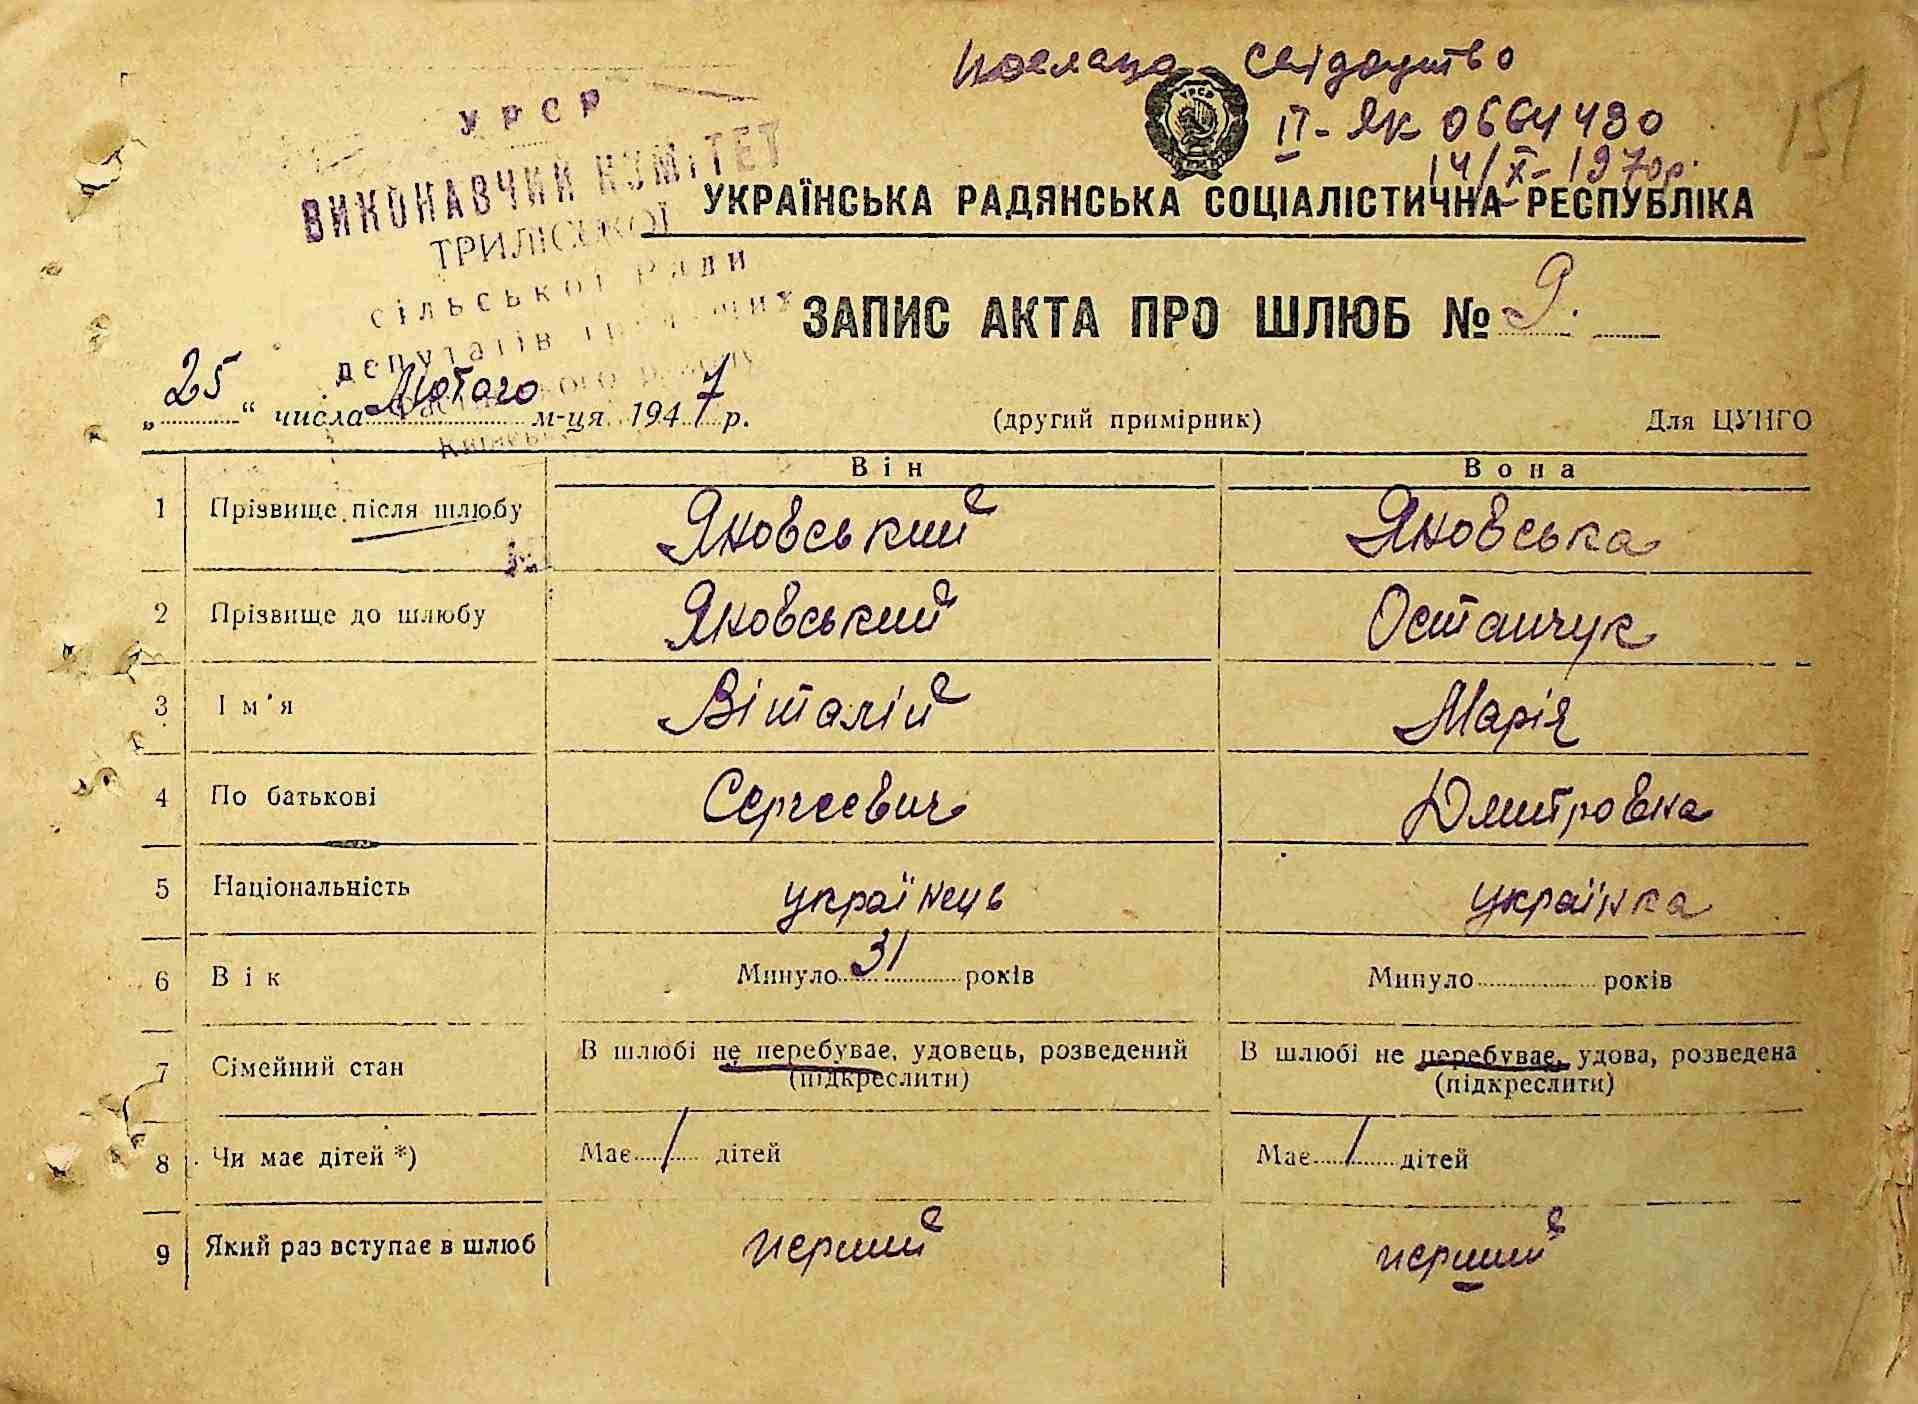 Послано свідоцтво
II-ЯК 0664480
14/X-1970р.
151
УРСР
ВИКОНАВЧИЙ КОМІТЕТ
ТРИЛІСЬКОЇ
сільської Ради
депутатів
УРСР
УКРАЇНСЬКА РАДЯНСЬКА СОЦІАЛІСТИЧНА РЕСПУБЛІКА
ЗАПИС АКТА ПРО ШЛЮБ № 9.
„25“ числа Лютого м-ця 1947 р. (другий примірник) Для ЦУНГО
Він Вона
1 Прізвище після шлюбу Яновський Яновська
2 Прізвище до шлюбу Яновський Остапчук
3 Ім'я Віталій Марія
4 По батькові Сергеевич Дмитровна
5 Національність українець українка
6 Вік Минуло 31 років Минуло років
7 Сімейний стан В шлюбі не перебуває, удовець, розведений В шлюбі не перебуває, удова, розведена
(підкреслити) (підкреслити)
8 Чи має дітей *) Має / дітей Має / дітей
9 Який раз вступає в шлюб перший перший